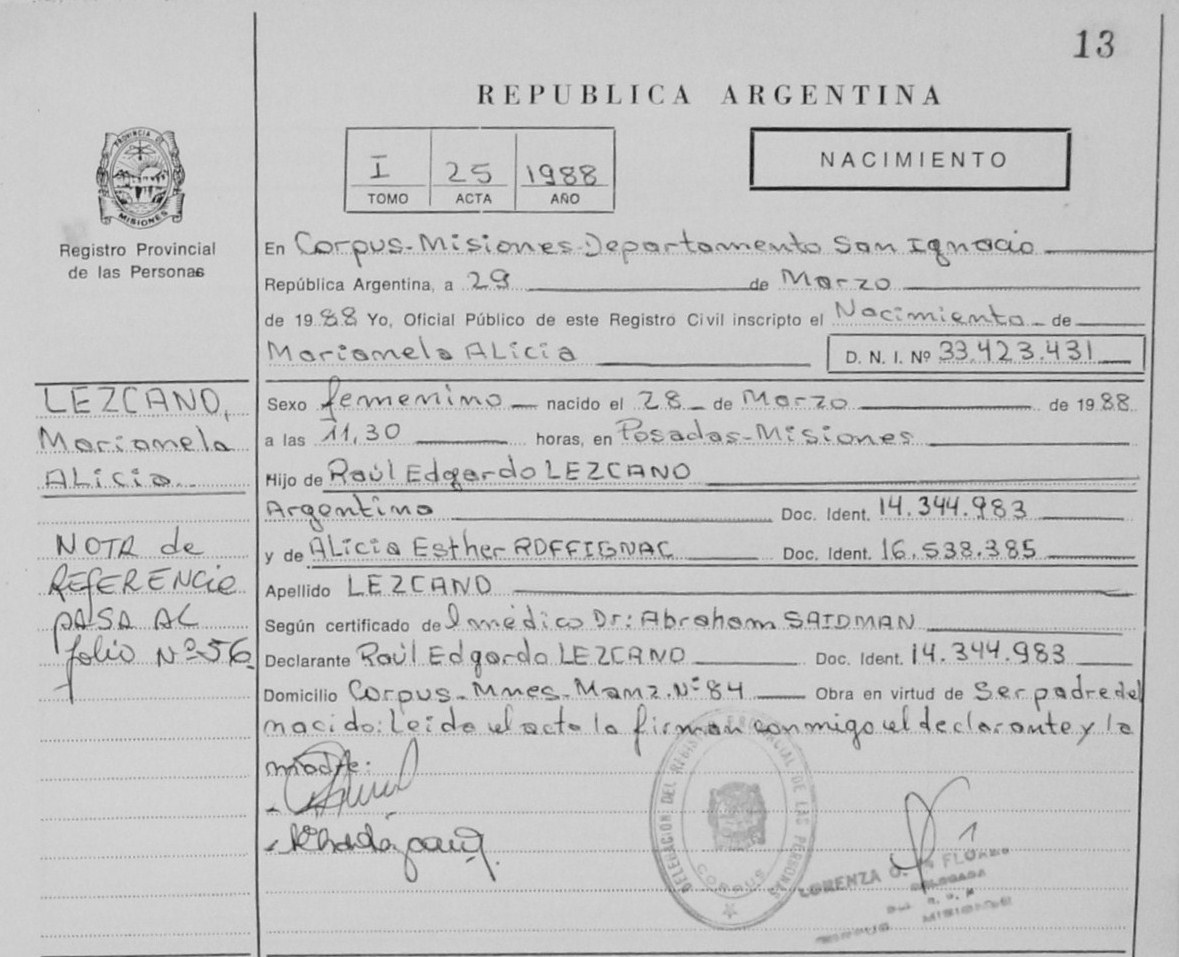 13
REPUBLICA ARGENTINA
PROVINCIA DE
MISIONES
Registro Provincial
de las Personas
I 25 1988
TOMO ACTA AÑO
NACIMIENTO
En Corpus-Misiones-Departamento San Ignacio
República Argentina, a 29 de Marzo
de 1988 Yo, Oficial Público de este Registro Civil inscripto el Nacimiento de
Marianela ALicia D. N. I. Nº 33.423.431
LEZCANO,
Marianela
ALicia
NOTA de
REFERENCIA
PASA AL
folio Nº 56
Sexo femenino nacido el 28 de Marzo de 1988
a las 11,30 horas, en Posadas-Misiones
Hijo de Raúl Edgardo LEZCANO
Argentino Doc. Ident. 14.344.983
y de ALicia Esther ROFFIGNAC Doc. Ident. 16.538.385
Apellido LEZCANO
Según certificado del médico Dr: Abraham SAIDMAN
Declarante Raúl Edgardo LEZCANO Doc. Ident. 14.344.983
Domicilio Corpus-Mnes-Manz.Nº 84 Obra en virtud de Ser padre del
nacido: Leida el acta la firman conmigo el declarante y la
madre:
DELEGACION DEL REGISTRO PROVINCIAL DE LAS PERSONAS
CORPUS
LORENZA FLORES
DELEGADA
CORPUS MISIONES